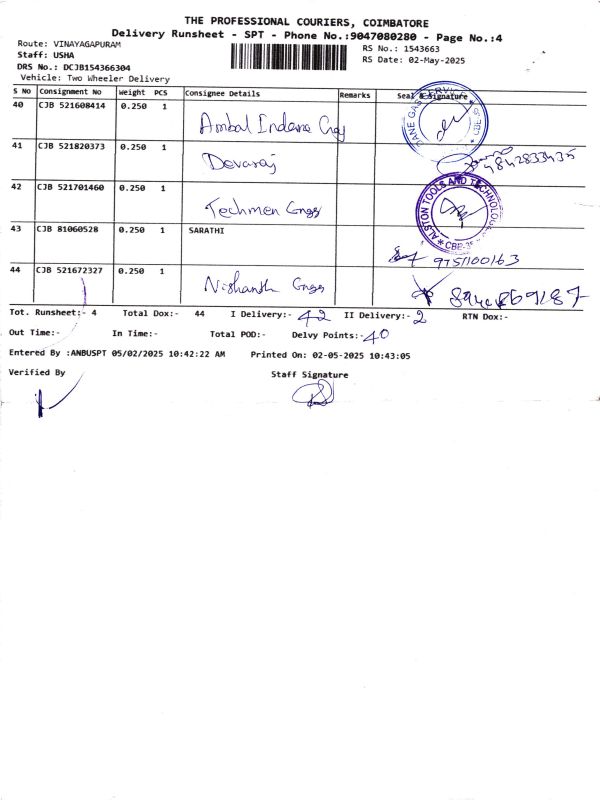 THE PROFESSIONAL COURIERS, COIMBATORE
Delivery Runsheet - SPT - Phone No.:9047080280 - Page No.:4
Route: VINAYAGAPURAM
RS No.: 1543663
Staff: USHA
RS Date: 02-May-2025
DRS No.: DCJB154366304
Vehicle: Two Wheeler Delivery
S No Consignment No Weight PCS Consignee Details Remarks Seal & Signature
40 CJB 521608414 0.250 1 Ambal Indane Gas
41 CJB 521820373 0.250 1 Devaraj
42 CJB 521701460 0.250 1 Techmen Enggs
ALSTON TOOLS AND TECHNOLOGY
43 CJB 81060528 0.250 1 SARATHI
9751100163
44 CJB 521672327 0.250 1 Nishanth Enggs
Tot. Runsheet:- 4 Total Dox:- 44 I Delivery:- 42 II Delivery:- 2 RTN Dox:-
Out Time:- In Time:- Total POD:- Delvy Points:- 40
Entered By :ANBUSPT 05/02/2025 10:42:22 AM Printed On: 02-05-2025 10:43:05
Verified By Staff Signature